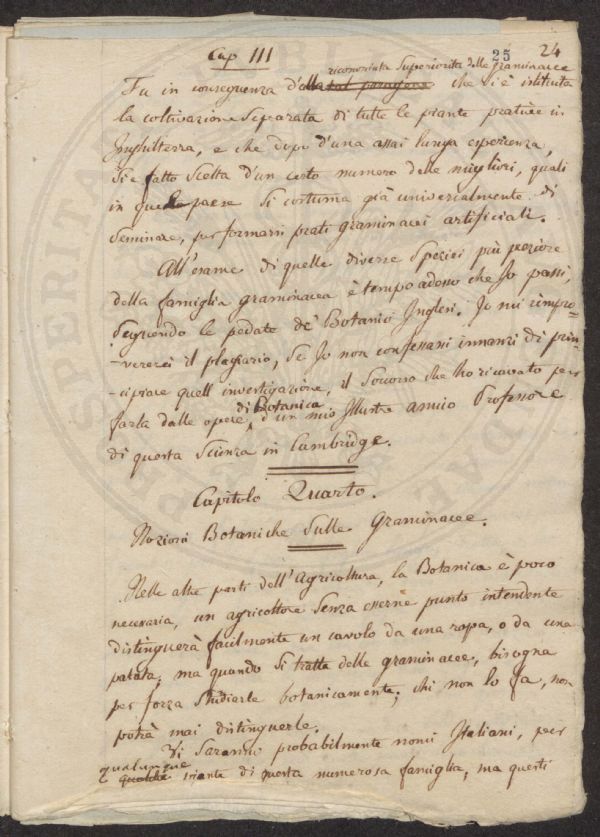 Cap III
25 24
riconosciuta Superiorità delle graminacee
Fu in conseguenza d'alla tal paragone che si è istituita
la coltivazione separata di tutte le piante prative in
Inghilterra, e che dopo d'una assai lunga esperienza,
si è fatto scelta d'un certo numero delle migliori, quali
in quel paese si costuma già universalmente di
seminare, per formarsi prati graminacei artificiali.
All'esame di quelle diverse Speziei più preziose
della famiglia graminacea è tempo adesso che Jo passi,
seguendo le pedate de' Botanici Inglesi. Jo mi rimpro-
-vererei il plagiario, se Jo non confessassi innanzi di prin-
-cipiare quell'investigazione, il Soccorso che ho ricavato per
farla dalle opere di Botanica, d'un mio Illustre amico Professore
di questa Scienza in Cambridge.
Capitolo Quarto.
Nozioni Botaniche Sulle Graminacee.
Nelle altre parti dell'Agricoltura, la Botanica è poco
necessaria, un agricoltore Senza esserne punto intendente
distinguerà facilmente un cavolo da una rapa, o da una
patata; ma quando si tratta delle graminacee, bisogna
per forza studiarle botanicamente; chi non lo fa, non
potrà mai distinguerle.
Vi Saranno probabilmente nomi Italiani, per
qualunque
qualche pianta di questa numerosa famiglia, ma questi